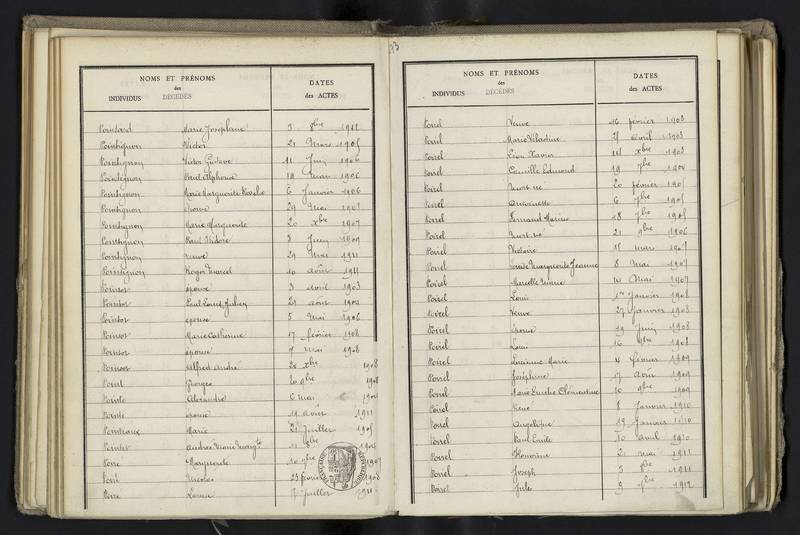 NOMS ET PRÉNOMS
des
INDIVIDUS DÉCÉDÉS
DATES
des ACTES
Marie Joséphine 3 8bre 1912
Pointignon Victor 21 Mars 1905
Pointignon Victor Gustave 11 Juin 1906
Pointignon Paul Alphonse 19 Mars 1906
Pointignon Marie Marguerite Rosalie 6 Janvier 1906
Pointignon épouse 29 Mai
Pointignon Marie Marguerite 20 Xbre 1907
Pointignon Paul Isidore 8 Juin 1909
Pointignon veuve 29 Mai 1911
Pointignon Roger Marcel 10 août 1911
Pointot épouse 3 avril 1903
Pointot Paul Louis Julien 29 août
Pointot épouse 5 Mai 1906
Pointot Marie Catherine 17 février 1908
Pointot épouse 9 Mai 1908
Pointot Alfred André 28 Xbre 1908
Georges 20 9bre
Pointe Alexandre 6 mai
Pointe épouse 19 août 1911
Pointeaux Marie 21 Juillet 1905
Pointet Andrée Marie
Poire Marguerite 10 7bre 1907
Nicolas 23 février 1908
Poire 17 Juillet 1911
23
NOMS ET PRÉNOMS
des
INDIVIDUS DÉCÉDÉS
DATES
des ACTES
Poirel Veuve 16 février 1903
Poirel Marie 28 avril 1903
Poirel Léon Xavier 14 Xbre 1903
Poirel Camille Edmond 19 7bre
Poirel Mort-né 20 février
Poirel Antoinette 6 7bre 1905
Poirel Fernand Marius 18 7bre 1905
Poirel Mort-né 21 9bre 1906
Poirel Victoire 15 mars 1907
Poirel Marguerite Jeanne 8 Mai 1907
Poirel Marcelle Marie 10 Mai 1907
Poirel Louis 1er Janvier 1908
Poirel Veuve 27 Janvier 1908
Poirel épouse 19 Juin 1908
Poirel Louis 16 9bre 1908
Poirel Lucienne Marie 4 février 1909
Poirel Joséphine 17 Août 1909
Poirel Marie Emélie Clémentine 10 9bre 1909
Poirel Veuve 8 Janvier 1910
Poirel Angélique 19 Janvier 1910
Poirel Paul Emile 10 Avril 1910
Poirel Honorine 21 mai 1911
Poirel Joseph 5 8bre 1911
Poirel Jules 9 7bre 1912